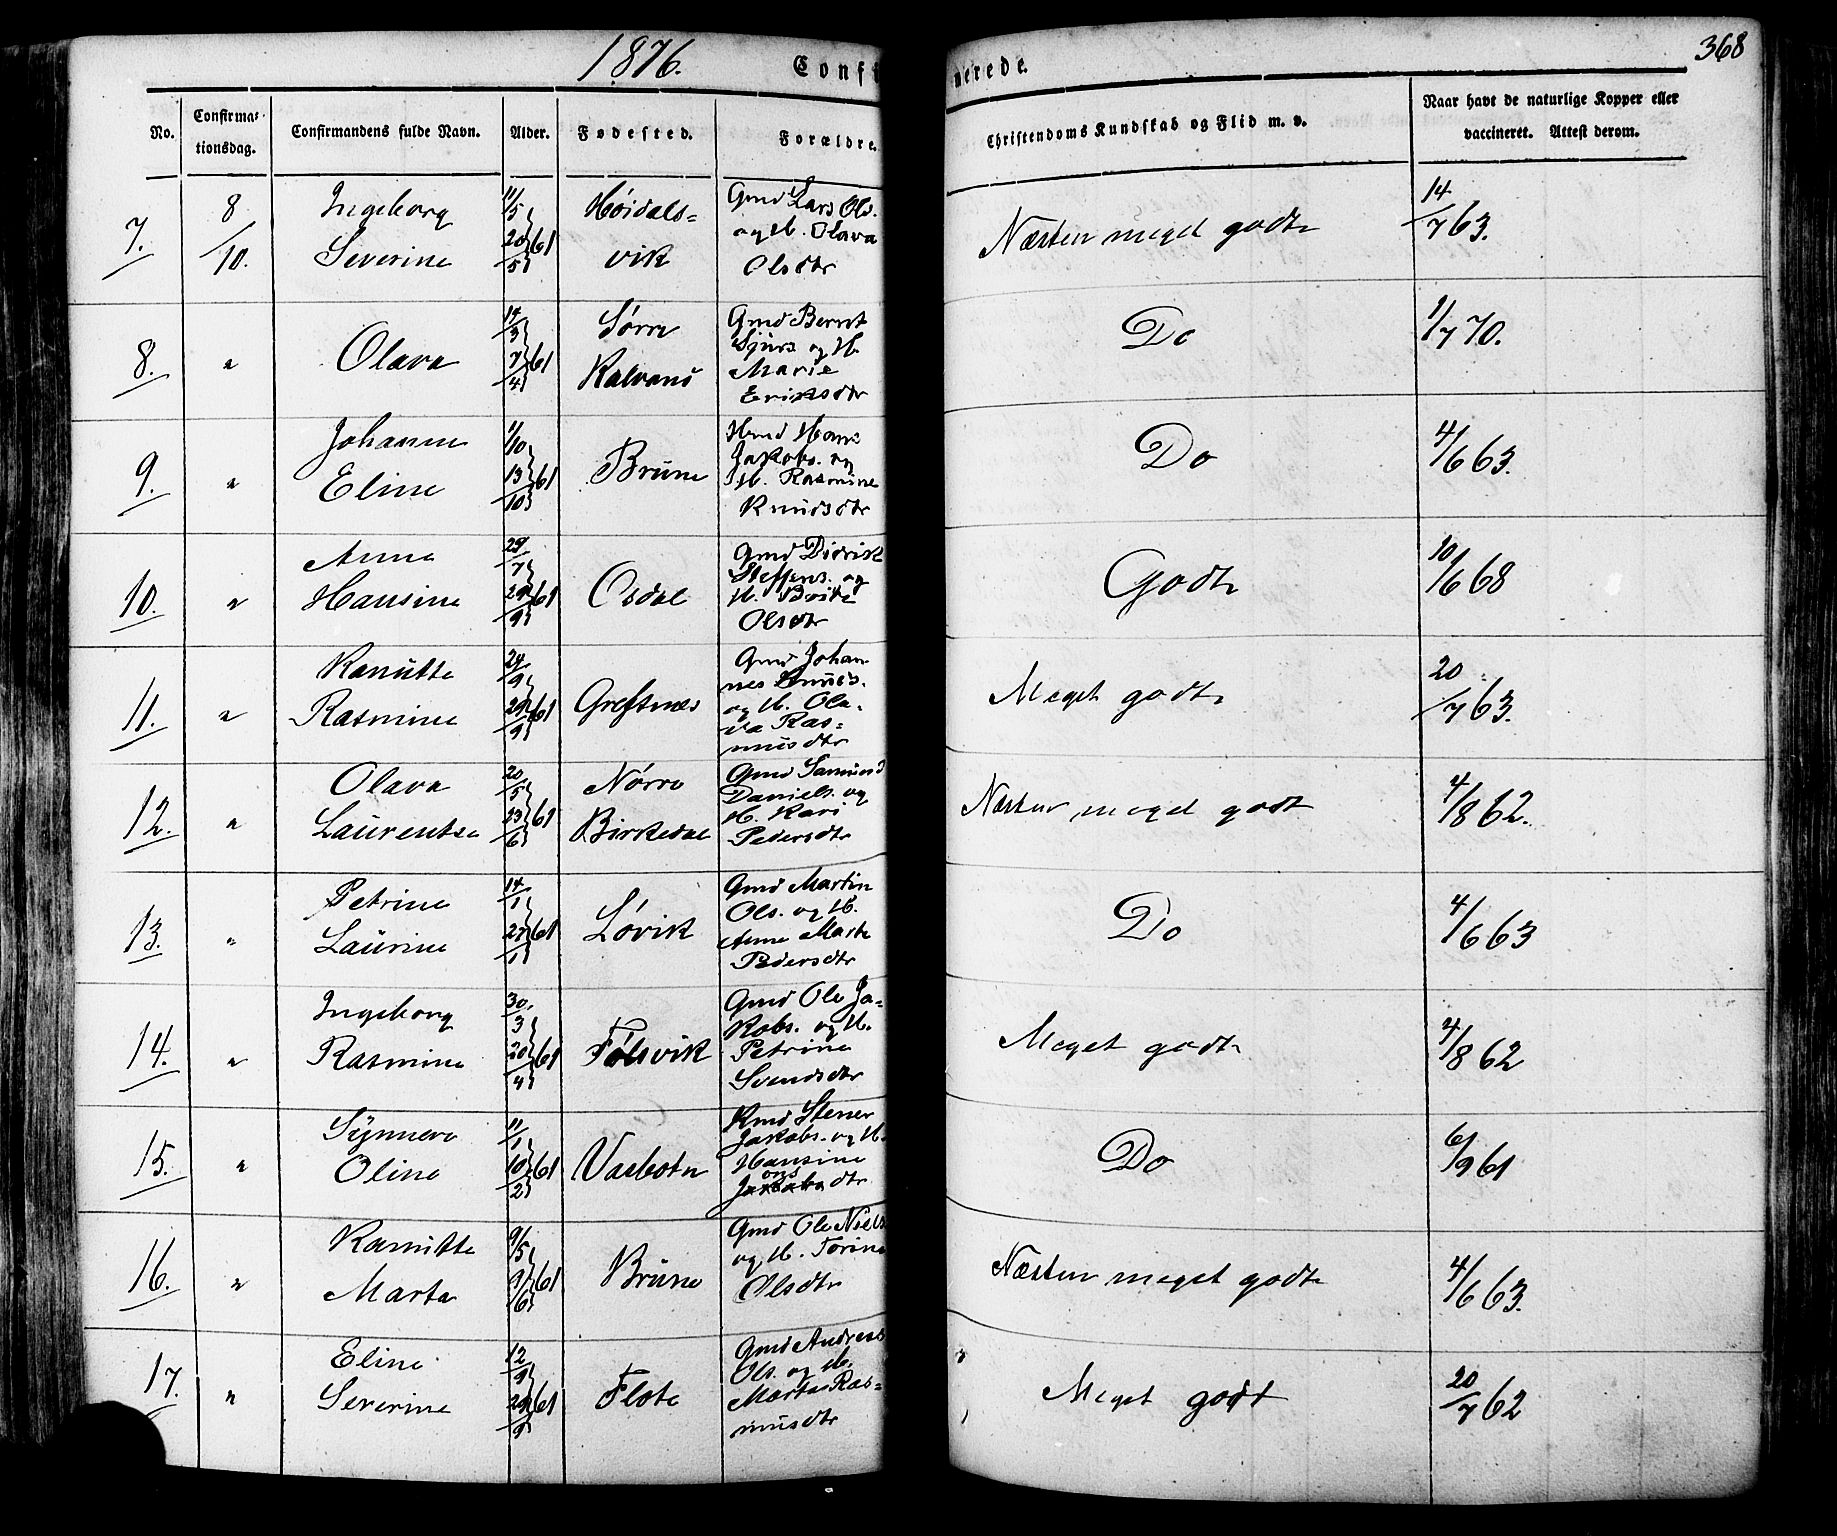 1876.
Confi
nerede.
368
No.
Confirma=
tionsdag.
Confirmandens fulde Navn.
Alder.
Fødested.
Forældre.
Christendoms Kundskab og Flid m. v.
Naar havt de naturlige Kopper eller
vaccineret. Attest derom.
7.
8/10.
Ingeborg
Severine
11/5 20/5 61
Høidals=
vik
Gmd Lars Ols.
og H. Olava
Olsdtr
Næsten meget godt
14/7 63.
8.
"
Olava
14/3 7/4 61
Sørre
Kalvanes
Gmd Bernt
Sjurs og H.
Marie
Eriksdtr
Do
1/7 70.
9.
"
Johanne
Eline
1/10 13/10 61
Brune
Hmd Hans
Jakobs. og
H. Rasmine
Knudsdtr
Do
4/6 63.
10.
"
Anne
Hansine
29/7 29/9 61
Osdal
Gmd Didrik
Steffens. og
H. Brite
Olsdtr
Godt
10/6 68
11.
"
Kanutte
Rasmine
24/9 29/9 61
Greftnes
Gmd Johan
nes
og H. Ola=
va Ras=
musdtr
Meget godt
20/7 63.
12.
"
Olava
Laurentse
20/5 23/6 61
Nørre
Birkedal
Gmd Samund
Daniels. og
H. Kari
Pedersdtr
Næsten meget godt
4/8 62.
13.
"
Petrine
Laurine
14/1 27/1 61
Løvik
Gmd Martin
Ols. og H.
Anne Marte
Pedersdtr
Do
4/6 63
14.
"
Ingeborg
Rasmine
30/3 20/4 61
Følsvik
Gmd Ole Ja=
kobs. og H.
Petrine
Svendsdtr
Meget godt
4/8 62
15.
"
Synneve
Oline
11/1 10/2 61
Varbotn
Kmd Stener
Jakobs. og H.
Hansine
Do
6/9 61
16.
"
Kanutte
Marta
9/5 9/6 61
Brune
Gmd Ole Niels
og H. Torine
Olsdtr
Næsten meget godt
4/6 63.
17.
"
Eline
Severine
12/9 29/9 61
Flote
Gmd Andreas
Ols. og H.
Marta Ras=
musdtr
Meget godt
20/7 62